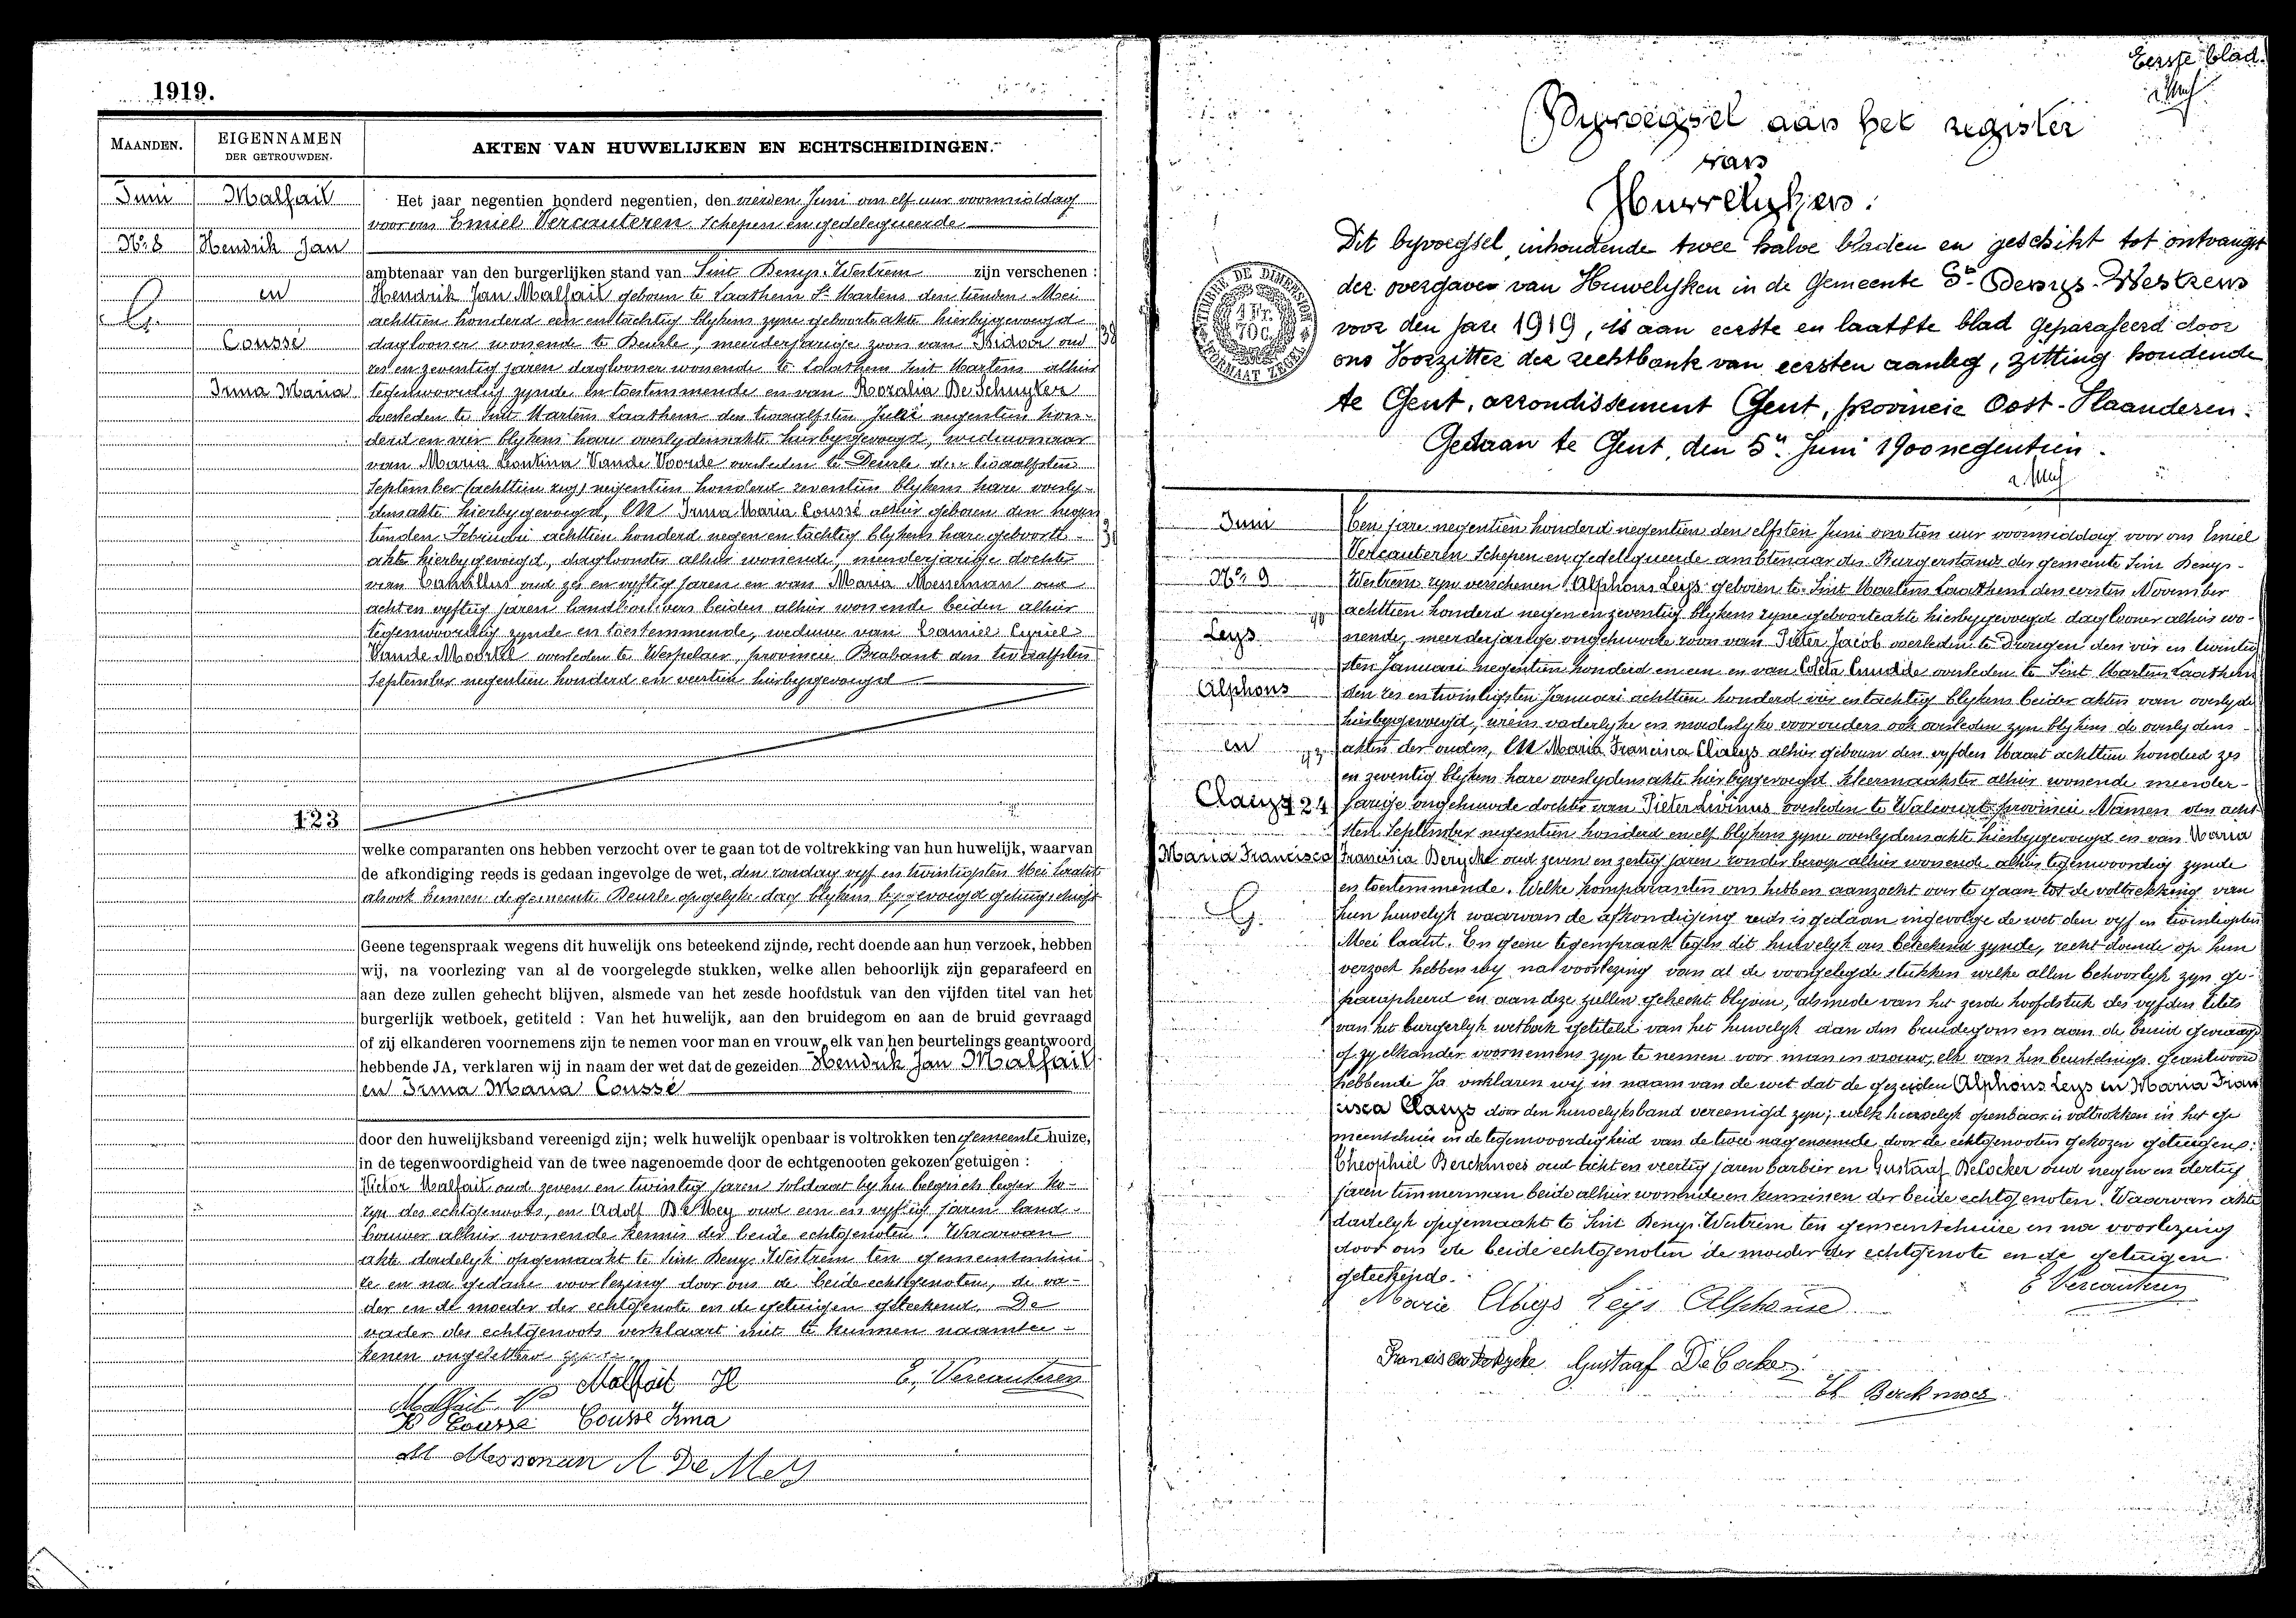 1919.
MAANDEN.
EIGENNAMEN
DER GETROUWDEN.
AKTEN VAN HUWELIJKEN EN ECHTSCHEIDINGEN.
Juni
Malfait
Nr 8
Hendrik Jan
en
G.
Coussé
Irma Maria
123
Het jaar negentien honderd negentien, den vierden Juni om elf uur voormiddag
voor ons Emiel Vercauteren Schepen en gedelegueerde
ambtenaar van den burgerlijken stand van Sint Denys-Westrem zijn verschenen :
Hendrik Jan Malfait geboren te Laathem St Martens den tienden Mei
achttien honderd een en tachtig blykens zyne geboorteakte hierbygevoegd
daglooner wonende te Deurle, meerderjarige zoon van Isidoor oud
zes en zeventig jaren daglooner wonende te Laathem Sint Martens alhier
tegenwoordig zynde en toestemmende en van Rozalia De Schuyter
overleden te Sint Martens Laathem den twaalfsten Juli negentien hon-
derd en vier blykens hare overlydensakte hierbygevoegd, weduwnaar
van Maria Leontina Vande Voorde overleden te Deurle den twaalfsten
September (achttien zeg) negentien honderd zeventien blykens hare overly-
densakte hierbygevoegd, EN Irma Maria Coussé alhier geboren den negen
tienden Februari achttien honderd negen en tachtig blykens hare geboorte-
akte hierbygevoegd, dagloonster alhier wonende, meerderjarige dochter
van Camillus oud zes en vyftig jaren en van Maria Messeman oud
acht en vyftig jaren landbouwers beiden alhier wonende beiden alhier
tegenwoordig zynde en toestemmende, weduwe van Camiel Cyriel
Vande Moortel overleden te Werpelaer, provincie Brabant den twaalfsten
September negentien honderd en veertien hierbygevoegd
welke comparanten ons hebben verzocht over te gaan tot de voltrekking van hun huwelijk, waarvan
de afkondiging reeds is gedaan ingevolge de wet, den zondag vyf en twintigsten Mei laatst
alsook binnen de gemeente Deurle op gelyke dag blykens bygevoegd getuigschrift
Geene tegenspraak wegens dit huwelijk ons beteekend zijnde, recht doende aan hun verzoek, hebben
wij, na voorlezing van al de voorgelegde stukken, welke allen behoorlijk zijn geparafeerd en
aan deze zullen gehecht blijven, alsmede van het zesde hoofdstuk van den vijfden titel van het
burgerlijk wetboek, getiteld : Van het huwelijk, aan den bruidegom en aan de bruid gevraagd
of zij elkanderen voornemens zijn te nemen voor man en vrouw, elk van hen beurtelings geantwoord
hebbende JA, verklaren wij in naam der wet dat de gezeiden Hendrik Jan Malfait
en Irma Maria Coussé
door den huwelijksband vereenigd zijn; welk huwelijk openbaar is voltrokken ten gemeente huize,
in de tegenwoordigheid van de twee nagenoemde door de echtgenooten gekozen getuigen :
Victor Malfait oud zeven en twintig jaren soldaat by het belgisch leger ko-
zyn des echtgenoots, en Adolf De Mey oud een en vyftig jaren land-
bouwer alhier wonende kennis der beide echtgenoten. Waarvan
akte dadelyk opgemaakt te Sint Denys-Westrem ten gemeentehui
ze en na gedane voorlezing door ons de beide echtgenoten, de va-
der en de moeder der echtgenote en de getuigen geteekend. De
vader des echtgenoots verklaart niet te kunnen naamtee-
kenen ongeletterd
Malfait V
Malfait H
E. Vercauteren
Coussé
Cousse Irma
M Messeman
A De Mey
Eerste blad.
Byvoegsel aan het register
van
Huwelyken.
Dit byvoegsel, inhoudende twee halve bladen en geschikt tot ontvangst
der overgaven van Huwelyken in de Gemeente St Denys-Westrem
voor den jare 1919, is aan eerste en laatste blad geparafeerd door
ons Voorzitter der rechtbank van eersten aanleg, zitting houdende
te Gent, arrondissement Gent, provincie Oost-Vlaanderen.
Gedaan te Gent, den 5n Juni 1900 negentien.
TIMBRE DE DIMENSION
1 Fr.
70 C.
FORMAAT ZEGEL
Juni
Nr 9
Leys
Alphons
en
Claeys
124
Maria Francisca
G.
Ten jare negentien honderd negentien den elfsten Juni om tien uur voormiddag voor ons Emiel
Vercauteren Schepen en gedelegueerde ambtenaar des Burgerstands der gemeente Sint Denys-
Westrem zyn verschenen Alphons Leys geboren te Sint Martens Laathem den eersten November
achttien honderd negen en zeventig blykens zyne geboorteakte hierbygevoegd daglooner alhier wo-
nende, meerderjarige ongehuwde zoon van Pieter Jacob overleden te Drongen den vier en twintig
sten Januari negentien honderd en een en van Coleta Cnudde overleden te Sint Martens Laathem
den zes en twintigsten Januari achttien honderd vier en tachtig blykens beider akten van overlyden
hierbygevoegd, wiens vaderlyke en moederlyke voorouders ook overleden zyn blykens de overlydens-
akten der ouders, EN Maria Francisca Claeys alhier geboren den vyfden Maart achttien honderd zes
en zeventig blykens hare overlydensakte hierbygevoegd kleermaakster alhier wonende meerder-
jarige ongehuwde dochter van Pieter Livinus overleden te Walcourt provincie Namen den acht
sten September negentien honderd en elf blykens zyne overlydensakte hierbygevoegd en van Maria
Francisca Derycke oud zeven en zestig jaren zonder beroep alhier wonende alhier tegenwoordig zynde
en toestemmende. Welke komparanten ons hebben aanzocht over te gaan tot de voltrekking van
hun huwelyk waarvan de afkondiging reeds is gedaan ingevolge de wet den vyf en twintigsten
Mei laatst. En geene tegenspraak tegen dit huwelyk ons beteekend zynde, recht doende op hun
verzoek hebben wy na voorlezing van al de voorgelegde stukken welke allen behoorlyk zyn ge-
parapheerd en aan deze zullen gehecht blyven, alsmede van het zesde hoofdstuk des vyfden titels
van het burgerlyk wetboek getiteld van het huwelyk aan den bruidegom en aan de bruid gevraagd
of zy elkander voornemens zyn te nemen voor man en vrouw, elk van hen beurtelings geantwoord
hebbende Ja verklaren wij in naam van de wet dat de gezeiden Alphons Leys en Maria Fran
cisca Claeys door den huwelyksband vereenigd zyn; welk huwelyk openbaar is voltrokken in het ge
meentehuis in de tegenwoordigheid van de twee nagenoemde door de echtgenooten gekozen getuigen:
Theophiel Berckmoes oud acht en veertig jaren barbier en Gustaaf De Cocker oud negen en dertig
jaren timmerman beide alhier wonende en kennissen der beide echtgenoten. Waarvan akte
dadelyk opgemaakt te Sint Denys-Westrem ten gemeentehuize en na voorlezing
door ons de beide echtgenoten de moeder der echtgenote en de getuigen
geteekende.
E Vercauteren
Marie Claeys Leys Alphonse
Francisca Derycke Gustaaf De Cocker
Th Berckmoes